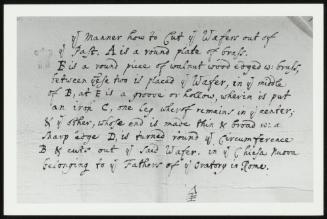 yͤ Manner how to Cut yͤ Wafers out of
yͤ Past. A is a round plate of brass.
B is a round piece of walnut wood edged wͭ: brass,
between these two is placed yͤ Wafer, in yͤ middle
of B, at E is a groove or hollow, wherein is put
an iron C, one leg whereof remains in yͤ center,
& yͤ other, whose end is made thin & broad wͭ: a
sharp edge D, is turned round yͤ Circumference
B & cuts out yͤ said Wafer. in yͤ Chiesa Nuova
belonging to yͤ Fathers of yͤ Oratory in Rome.